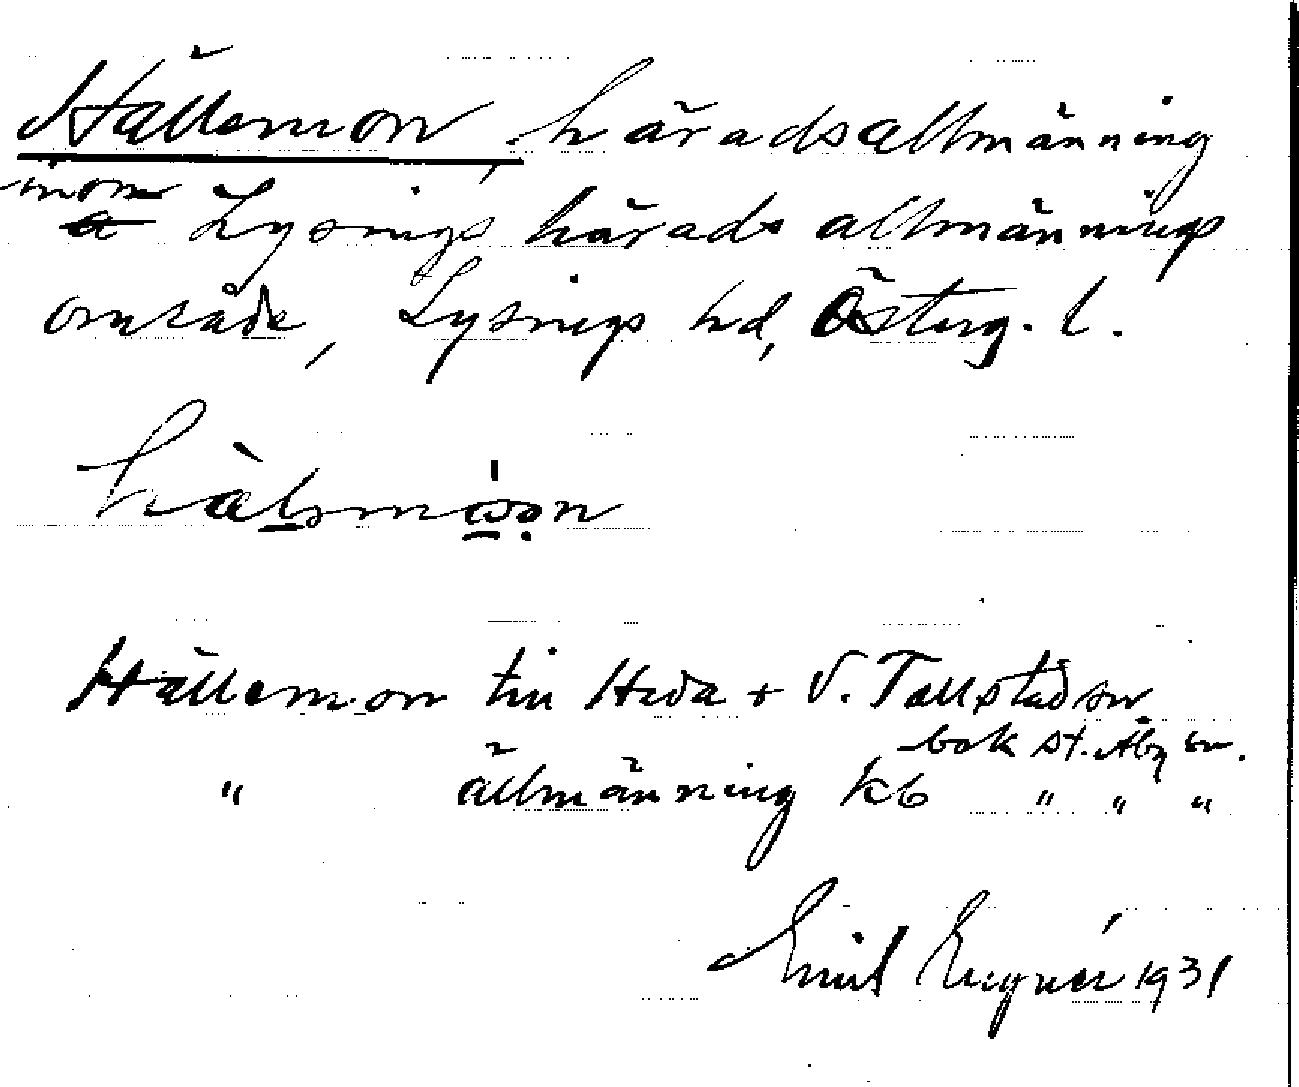 Hällemon, häradsallmänning
inom Lysings härads allmännings
område, Lysings hd, Österg. l.
Hällemon till Heda + V. Tollstad snr
bok St. Åby sn.
" ällmänning kb " " "
Emil Engnér 1931